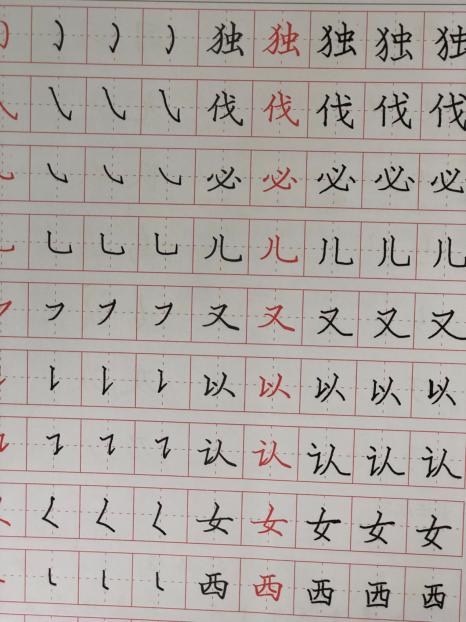 独独独独独
伐伐伐伐伐
必必必必必
儿儿儿儿儿
又又又又又
以以以以以
认认认认认
女女女女女
西西西西西